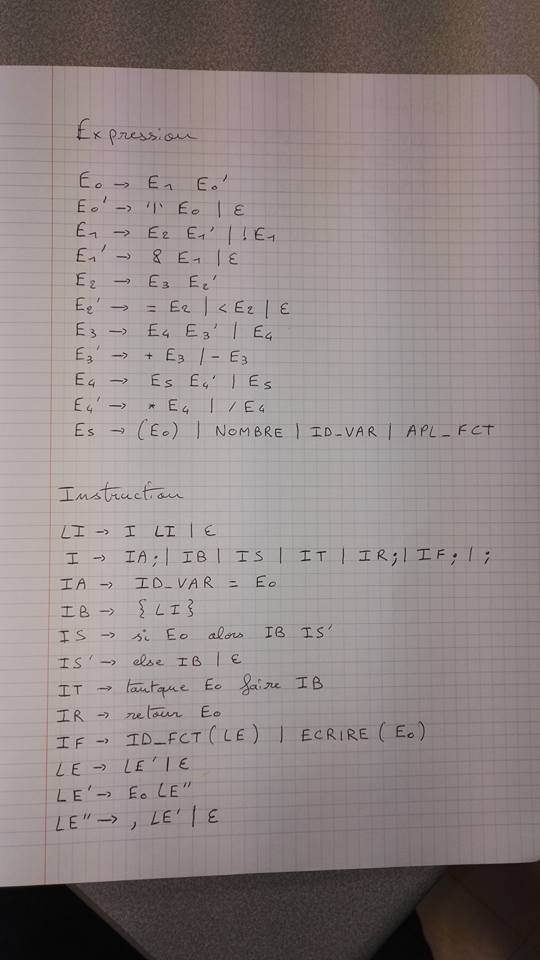 Expression
E0 → E1 E0'
E0' → '|' E0 | ε
E1 → E2 E1' | ! E1
E1' → & E1 | ε
E2 → E3 E2'
E2' → = E2 | < E2 | ε
E3 → E4 E3' | E4
E3' → + E3 | - E3
E4 → E5 E4' | E5
E4' → * E4 | / E4
E5 → (E0) | NOMBRE | ID_VAR | APL_FCT
Instruction
LI → I LI | ε
I → IA; | IB | IS | IT | IR; | IF; | ;
IA → ID_VAR = E0
IB → { LI }
IS → si E0 alors IB IS'
IS' → else IB | ε
IT → tantque E0 faire IB
IR → retour E0
IF → ID_FCT ( LE ) | ECRIRE ( E0 )
LE → LE' | ε
LE' → E0 LE"
LE" → , LE' | ε